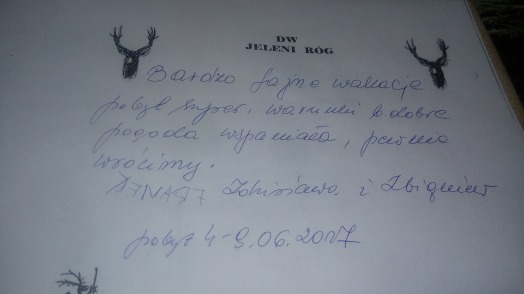 DW
JELENI RÓG
Bardzo fajne wakacje
pobyt super, warunki b dobre
pogoda wspaniała, pewnie
wrócimy.
Zdzisława i Zbigniew
pobyt 4-9.06.2017